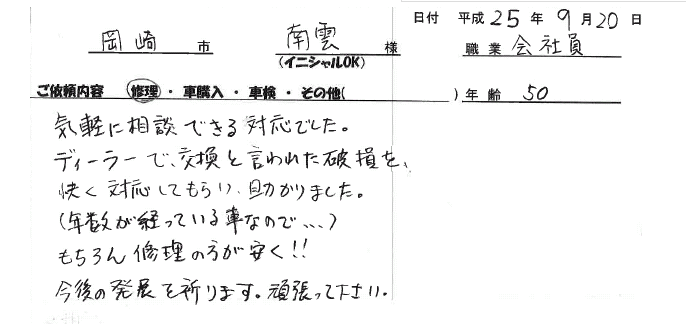 日付 平成 25 年 9 月 20 日
岡崎 市 南雲 様 職業 会社員
(イニシャルOK)
ご依頼内容 (修理)・車購入・車検・その他( )年齢 50
気軽に相談できる対応でした。
ディーラーで、交換と言われた破損を、
快く対応してもらい、助かりました。
(年数が経っている車なので...)
もちろん修理の方が安く!!
今後の発展を祈ります。頑張って下さい。